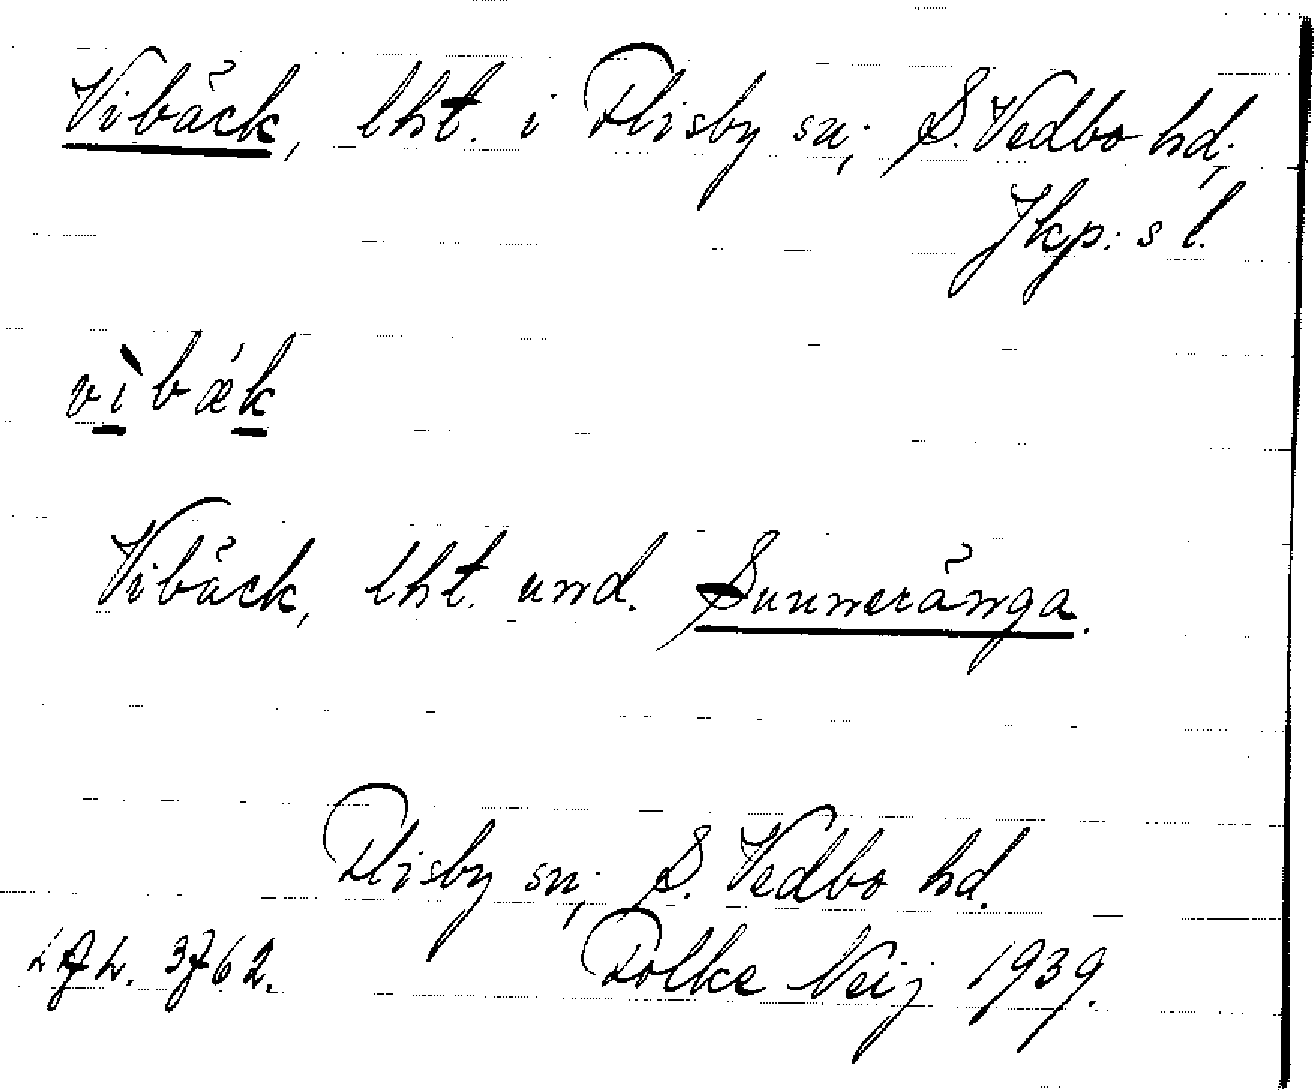 Vibäck, lht. i Flisby sn; S. Vedbo hd;
Jkp:s l.
vìbǽk
Vibäck, lht. und. Sunneränga.
Flisby sn; S. Vedbo hd.
3762. Folke Neij 1939.